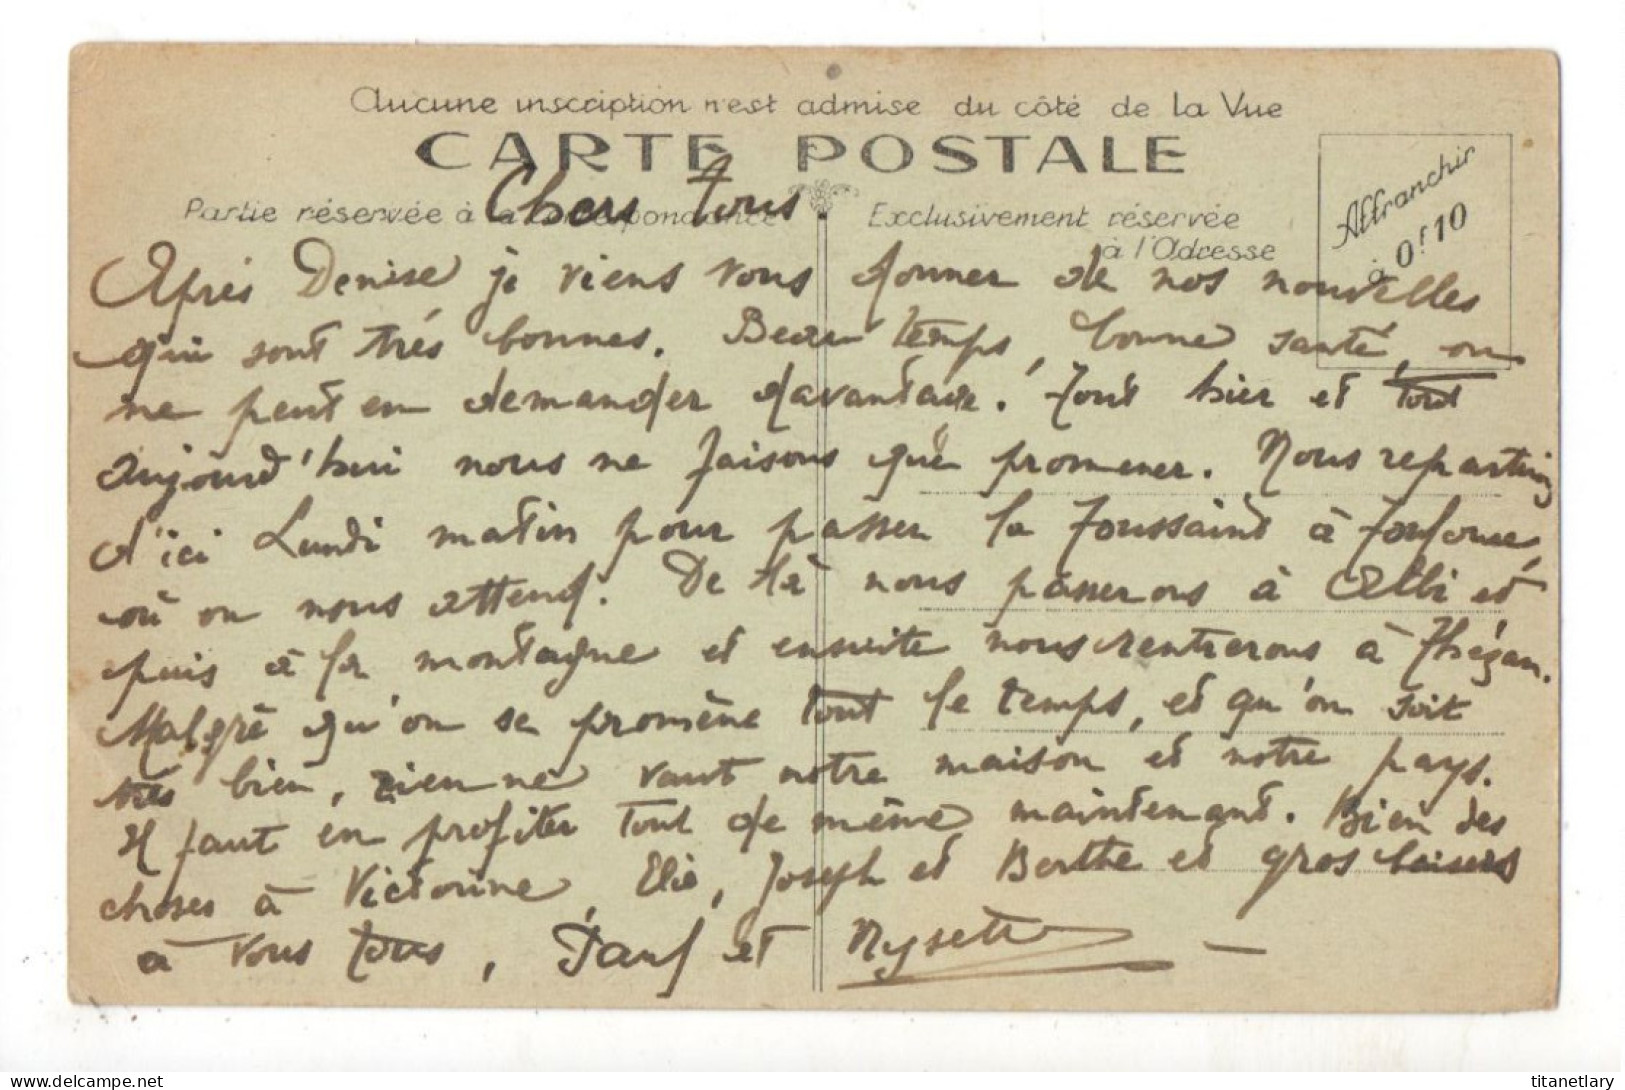 Aucune inscription n'est admise du côté de la Vue
CARTE POSTALE
Partie réservée à la correspondance
Exclusivement réservée
à l'Adresse
Affranchir
à 0f10
Chers Tous
Après Denise je viens vous donner de nos nouvelles
qui sont très bonnes. Beau temps, bonne santé, on
ne peut en demander davantage. Tout hier et tout
aujourd'hui nous ne faisons que promener. Nous repartirons
d'ici Lundi matin pour passer la Toussaint à
où on nous attend. De là nous passerons à Albi et
puis à la montagne et ensuite nous rentrerons à Thézan.
Malgré qu'on se promène tout le temps, et qu'on soit
très bien, rien ne vaut notre maison et notre pays.
Il faut en profiter tout de même maintenant. Bien des
choses à Victorine, Elie, Joseph et Berthe et gros baisers
à vous tous, Paul et Nysette
titanetlary